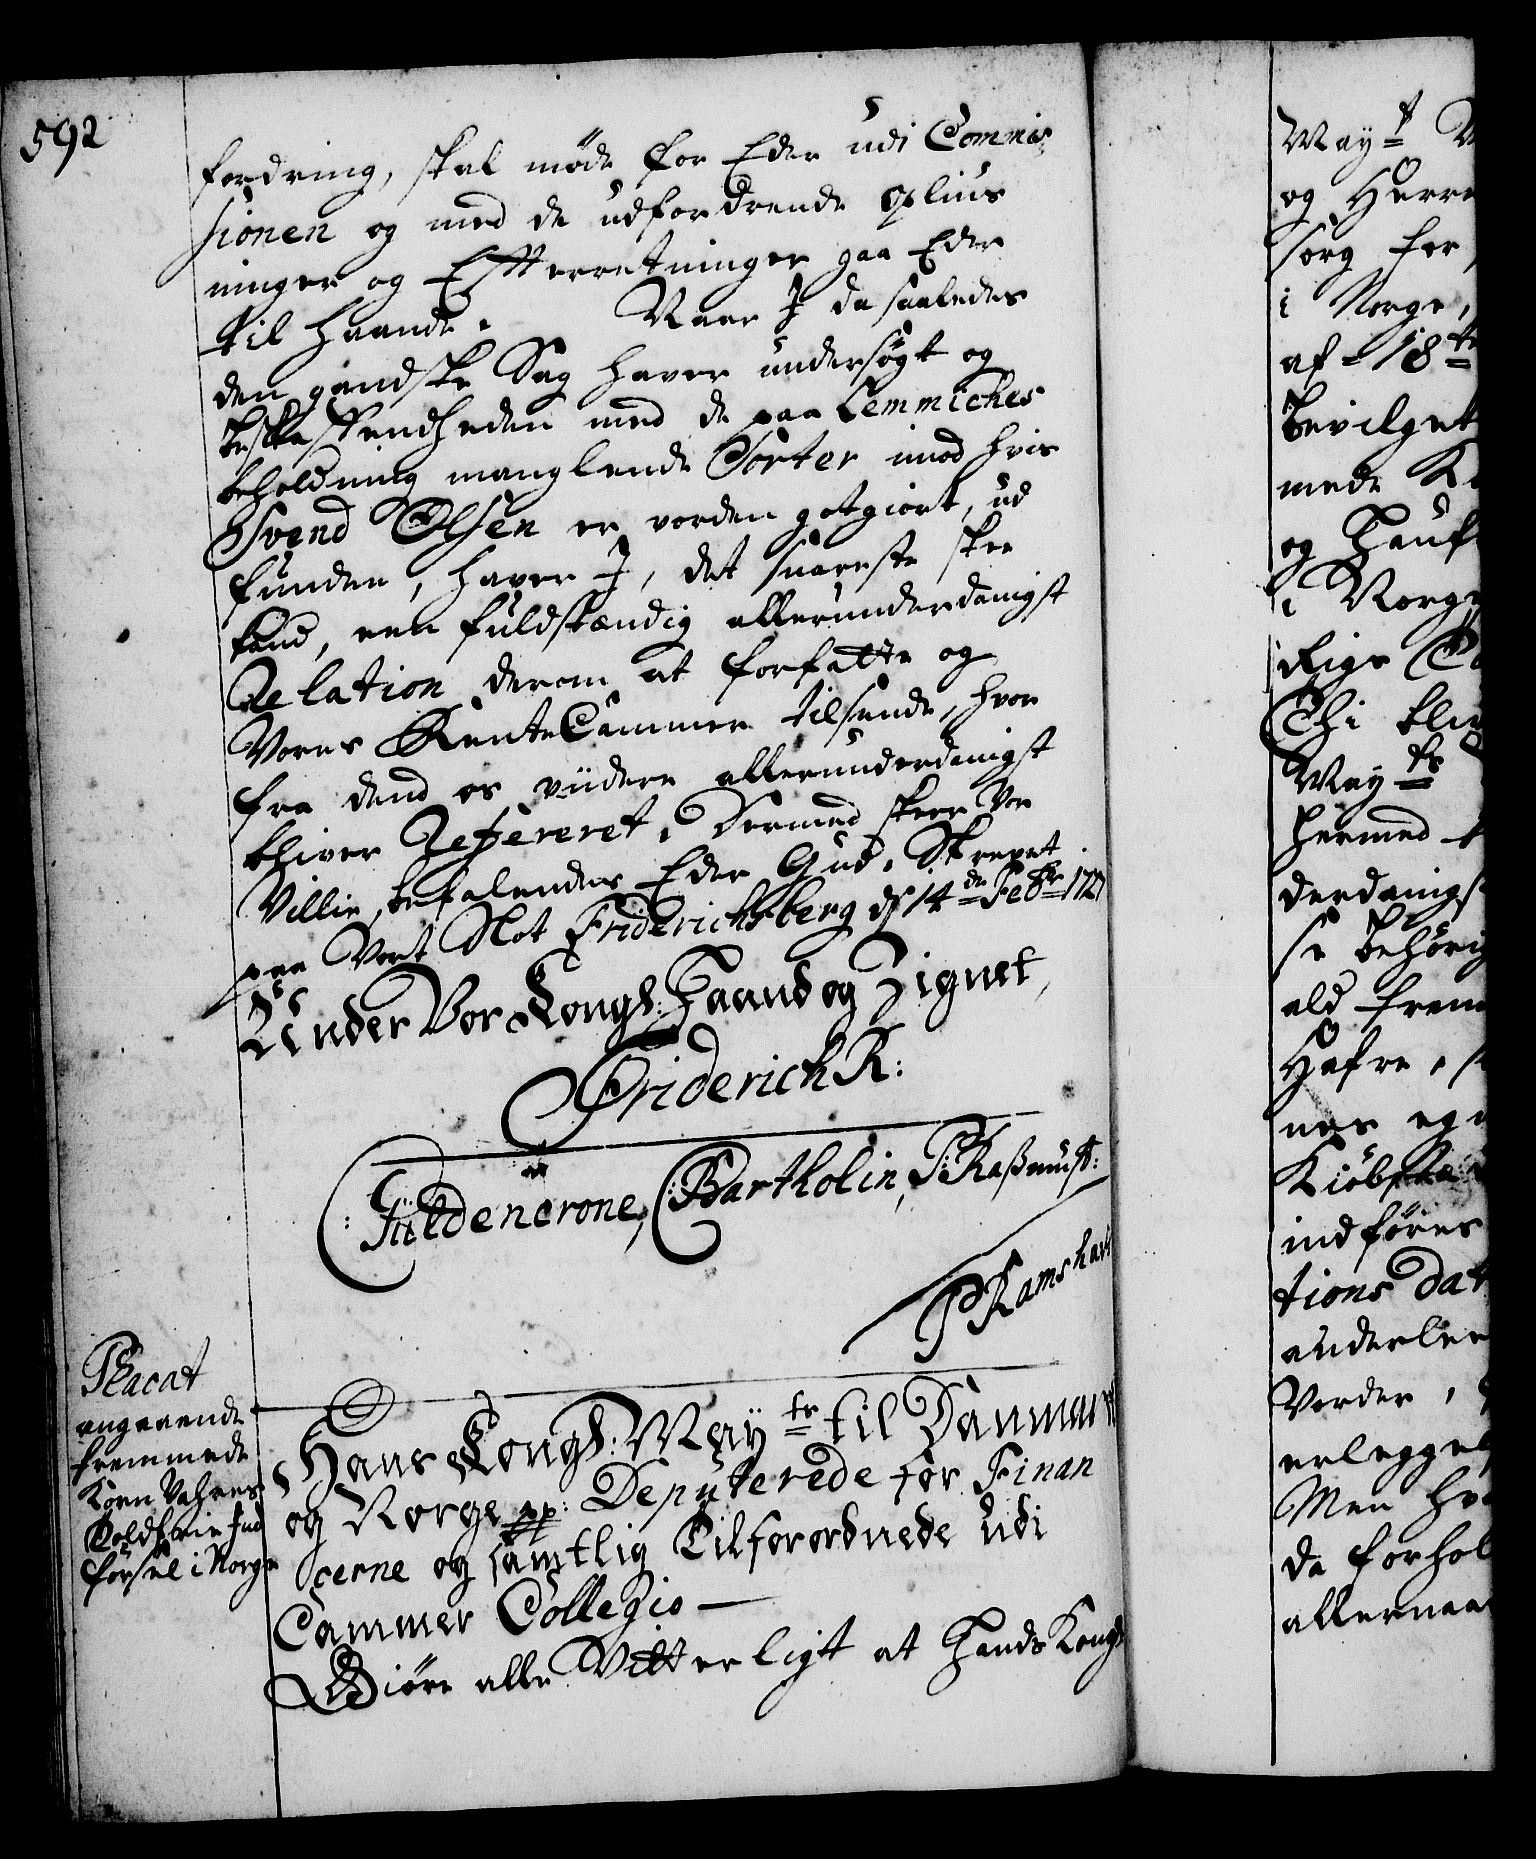 592
fordring, skal møde for Eder udi Commis
sionen og med de udfordrende oplius
ninger og Efterretninger gaa Eder
til haande. Naar J da saaledes
den gandske Sag haver undersøgt og
beskaffendheden med de paa Lemmiches
beholdning manglende Sorter imod hvis
Svend Olsen er vorden gotgiort, ud
funden, haver J, det snareste skee
kand, een fuldstændig allerunderdanigst
Relation derom at forfatte og
Vores RenteCammer tilsende, hvor
fra dend os viidere allerunderdanigst
bliver Refereret. Dermed skeer Vor
Villie, befalendes Eder Gud. Skrevet
paa Vort Slot Friderichsberg d. 14de Febr: 1727
Under Vor Kongl: Haand og Zignet,
Friderich R:
C: Güldencrone, C: Bartholin, P: Raßmuss:
P Ramshart
Placat
angaaende
fremmede
Korn Vahres
Toldfrie Ind
førsel i Norge
Hans Kongl: Mayts til Danmark
og Norge pp: Deputerede for Finan
cerne og samtlig Tilforordnede udi
Cammer Collegio —
Giøre alle Vitterligt at Hands Kongl
Mayt
og Herre
sorg for
i Norge,
af 18te
bevilget
mede K
og Hauf
i Norge
Rige
Thi bliv
Mayts
hermed
derdanigs
se behørig
ald frem
Hafre, s
nes eg
Kiøbste
indføres
tions dat
anderlee
Vorder,
erlegge
Men hv
da forhol
allernaa